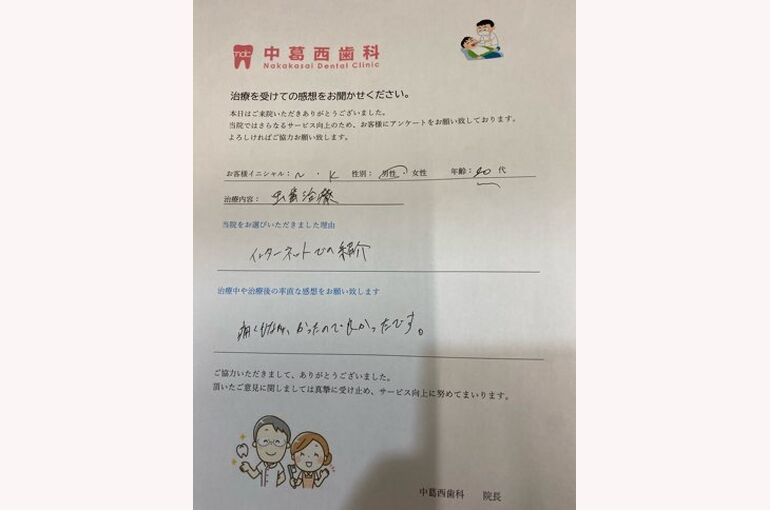 中葛西歯科
Nakakasai Dental Clinic
治療を受けての感想をお聞かせください。
本日はご来院いただきありがとうございました。
当院ではさらなるサービス向上のため、お客様にアンケートをお願い致しております。
よろしければご協力お願い致します。
お客様イニシャル: N ・ K 性別: 男性 ・ 女性 年齢: 40 代
治療内容: 虫歯治療
当院をお選びいただきました理由
インターネットでの紹介
治療中や治療後の率直な感想をお願い致します
痛くもなかったので良かったです。
ご協力いただきまして、ありがとうございました。
頂いたご意見に関しましては真摯に受け止め、サービス向上に努めてまいります。
中葛西歯科 院長